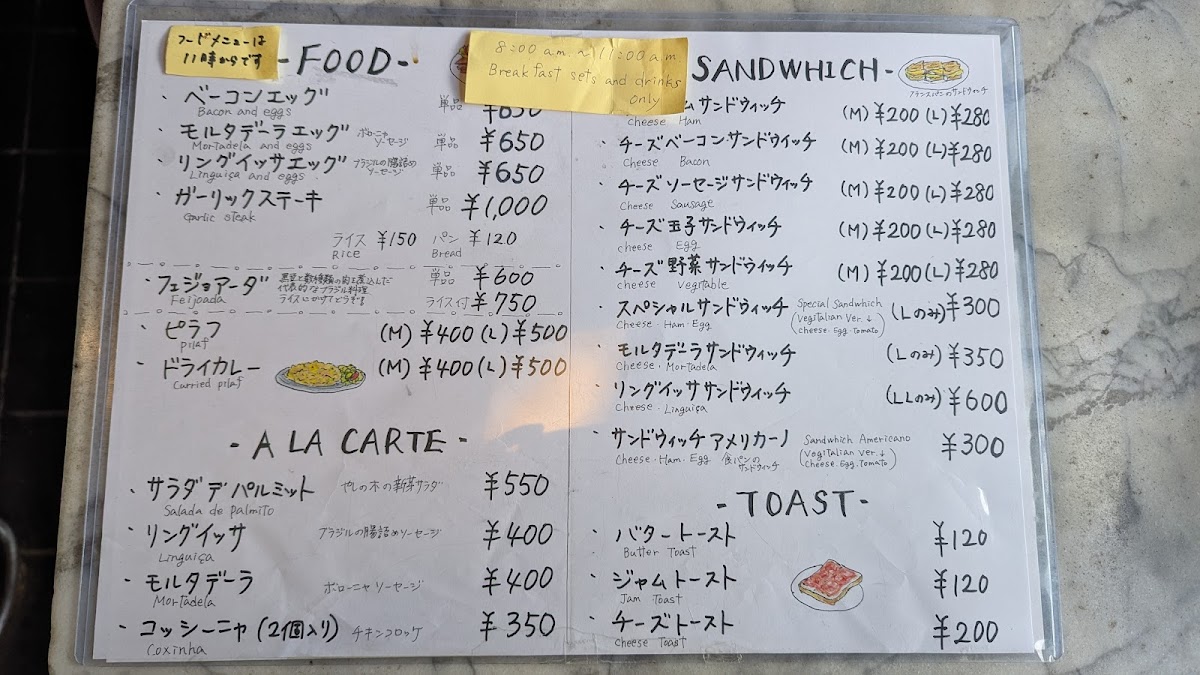 フードメニューは
11時からです
- FOOD -
ベーコンエッグ 単品 ¥650
Bacon and eggs
モルタデーラエッグ ボローニャソーセージ 単品 ¥650
Mortadela and eggs
リングイッサエッグ ブラジルの腸詰めソーセージ 単品 ¥650
Linguiça and eggs
ガーリックステーキ 単品 ¥1,000
Garlic steak
ライス ¥150 パン ¥120
Rice Bread
フェジョアーダ 単品 ¥600
Feijoada
代表的なブラジル料理
ライスにかけてどうぞ!
ライス付 ¥750
ピラフ (M) ¥400 (L) ¥500
pilaf
ドライカレー (M) ¥400 (L) ¥500
Curried pilaf
- A LA CARTE -
サラダ デ パルミット やしの木の新芽サラダ ¥550
Salada de palmito
リングイッサ ブラジルの腸詰めソーセージ ¥400
Linguiça
モルタデーラ ボローニャ ソーセージ ¥400
Mortadela
コッシーニャ (2個入り) チキンコロッケ ¥350
Coxinha
8:00 a.m. ~ 11:00 a.m.
Breakfast sets and drinks
only
SANDWHICH -
フランスパンのサンドウィッチ
ムサンドウィッチ (M) ¥200 (L) ¥280
Cheese Ham
チーズベーコンサンドウィッチ (M) ¥200 (L) ¥280
Cheese Bacon
チーズソーセージサンドウィッチ (M) ¥200 (L) ¥280
Cheese Sausage
チーズ玉子サンドウィッチ (M) ¥200 (L) ¥280
cheese Egg
チーズ野菜サンドウィッチ (M) ¥200 (L) ¥280
cheese Vegitable
スペシャルサンドウィッチ (Lのみ) ¥300
Cheese・Ham・Egg
Special Sandwhich
(Vegitalian Ver.↓
cheese・Egg・Tomato)
モルタデーラサンドウィッチ (Lのみ) ¥350
Cheese・Mortadela
リングイッササンドウィッチ (LLのみ) ¥600
Cheese・Linguiça
サンドウィッチ アメリカーノ ¥300
Cheese・Ham・Egg 食パンのサンドウィッチ
Sandwhich Americano
(Vegitalian Ver.↓
Cheese・Egg・Tomato)
- TOAST -
バタートースト ¥120
Butter Toast
ジャムトースト ¥120
Jam Toast
チーズトースト ¥200
Cheese Toast